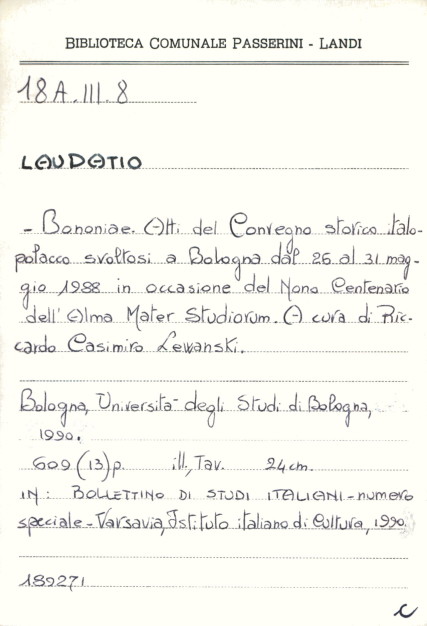 BIBLIOTECA COMUNALE PASSERINI - LANDI
18A.III.8
LAUDATIO
- Bononiae. Atti del Convegno storico italo-
polacco svoltosi a Bologna dal 26 al 31 mag-
gio 1988 in occasione del Nono Centenario
dell'Alma Mater Studiorum. A cura di Ric-
cardo Casimiro Lewanski.
Bologna, Università degli Studi di Bologna,
1990.
609 (13) p. ill., Tav. 24 cm.
IN: BOLLETTINO DI STUDI ITALIANI - numero
speciale - Varsavia, Istituto italiano di Cultura, 1990.
189271
C